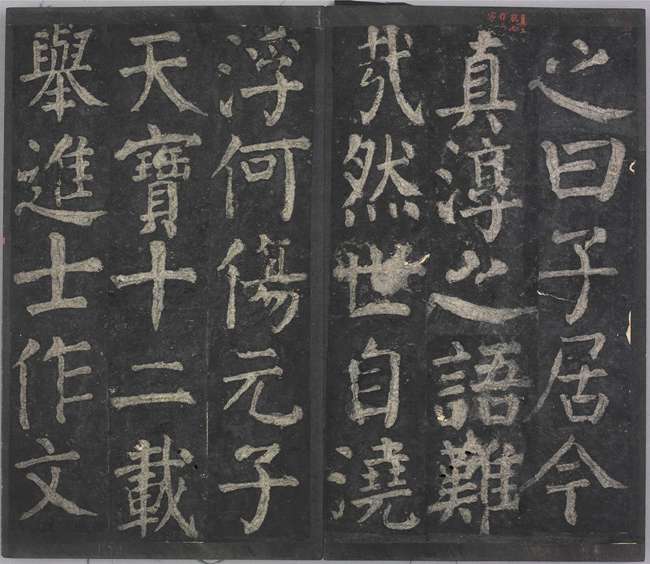 之曰子居今
真淳之語難
㢤然世自澆
浮何傷元子
天寶十二載
舉進士作文